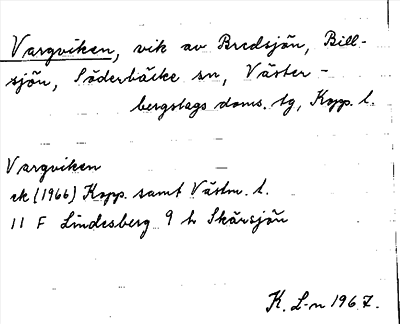 Vargviken, vik av Bredsjön, Bill-
sjön, Söderbärke sn, Väster-
bergslags doms. tg, Kopp. l.
Vargviken
ek (1966) Kopp. samt Västm. l.
11 F Lindesberg 9 h Skärsjön
K. L-n 1967.